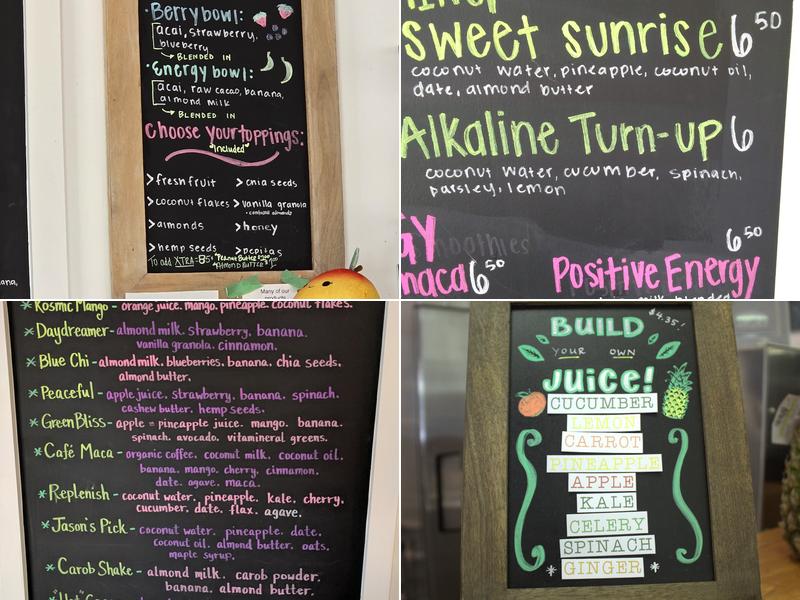 Berry bowl:
acai, strawberry,
blueberry
BLENDED IN
Energy bowl:
acai, raw cacao, banana,
almond milk
BLENDED IN
Choose your toppings:
"included"
> fresh fruit > chia seeds
> coconut flakes > vanilla granola
- contains almonds
> almonds > honey
> hemp seeds > pepitas
To add XTRA = 85¢
Many of our
products
sweet sunrise 6 50
coconut water, pineapple, coconut oil,
date, almond butter
Alkaline Turn-up 6
coconut water, cucumber, spinach,
parsley, lemon
smoothies
GY
maca 6 50
6 50
Positive Energy
milk, blended
* Kosmic Mango - orange juice. mango. pineapple. coconut flakes.
* Daydreamer - almond milk. strawberry. banana.
vanilla granola. cinnamon.
* Blue Chi - almond milk. blueberries. banana. chia seeds.
almond butter.
* Peaceful - apple juice. strawberry. banana. spinach.
cashew butter. hemp seeds.
* Green Bliss - apple = pineapple juice. mango. banana.
spinach. avocado. vitamineral greens.
* Café Maca - organic coffee. coconut milk. coconut oil.
banana. mango. cherry. cinnamon.
date. agave. maca.
* Replenish - coconut water. pineapple. kale. cherry.
cucumber. date. flax. agave.
* Jason's Pick - coconut water. pineapple. date.
coconut oil. almond butter. oats.
maple syrup.
* Carob Shake - almond milk. carob powder.
banana. almond butter.
BUILD
$4.35!
YOUR OWN
JUICE!
CUCUMBER
LEMON
CARROT
PINEAPPLE
APPLE
KALE
CELERY
SPINACH
* GINGER *